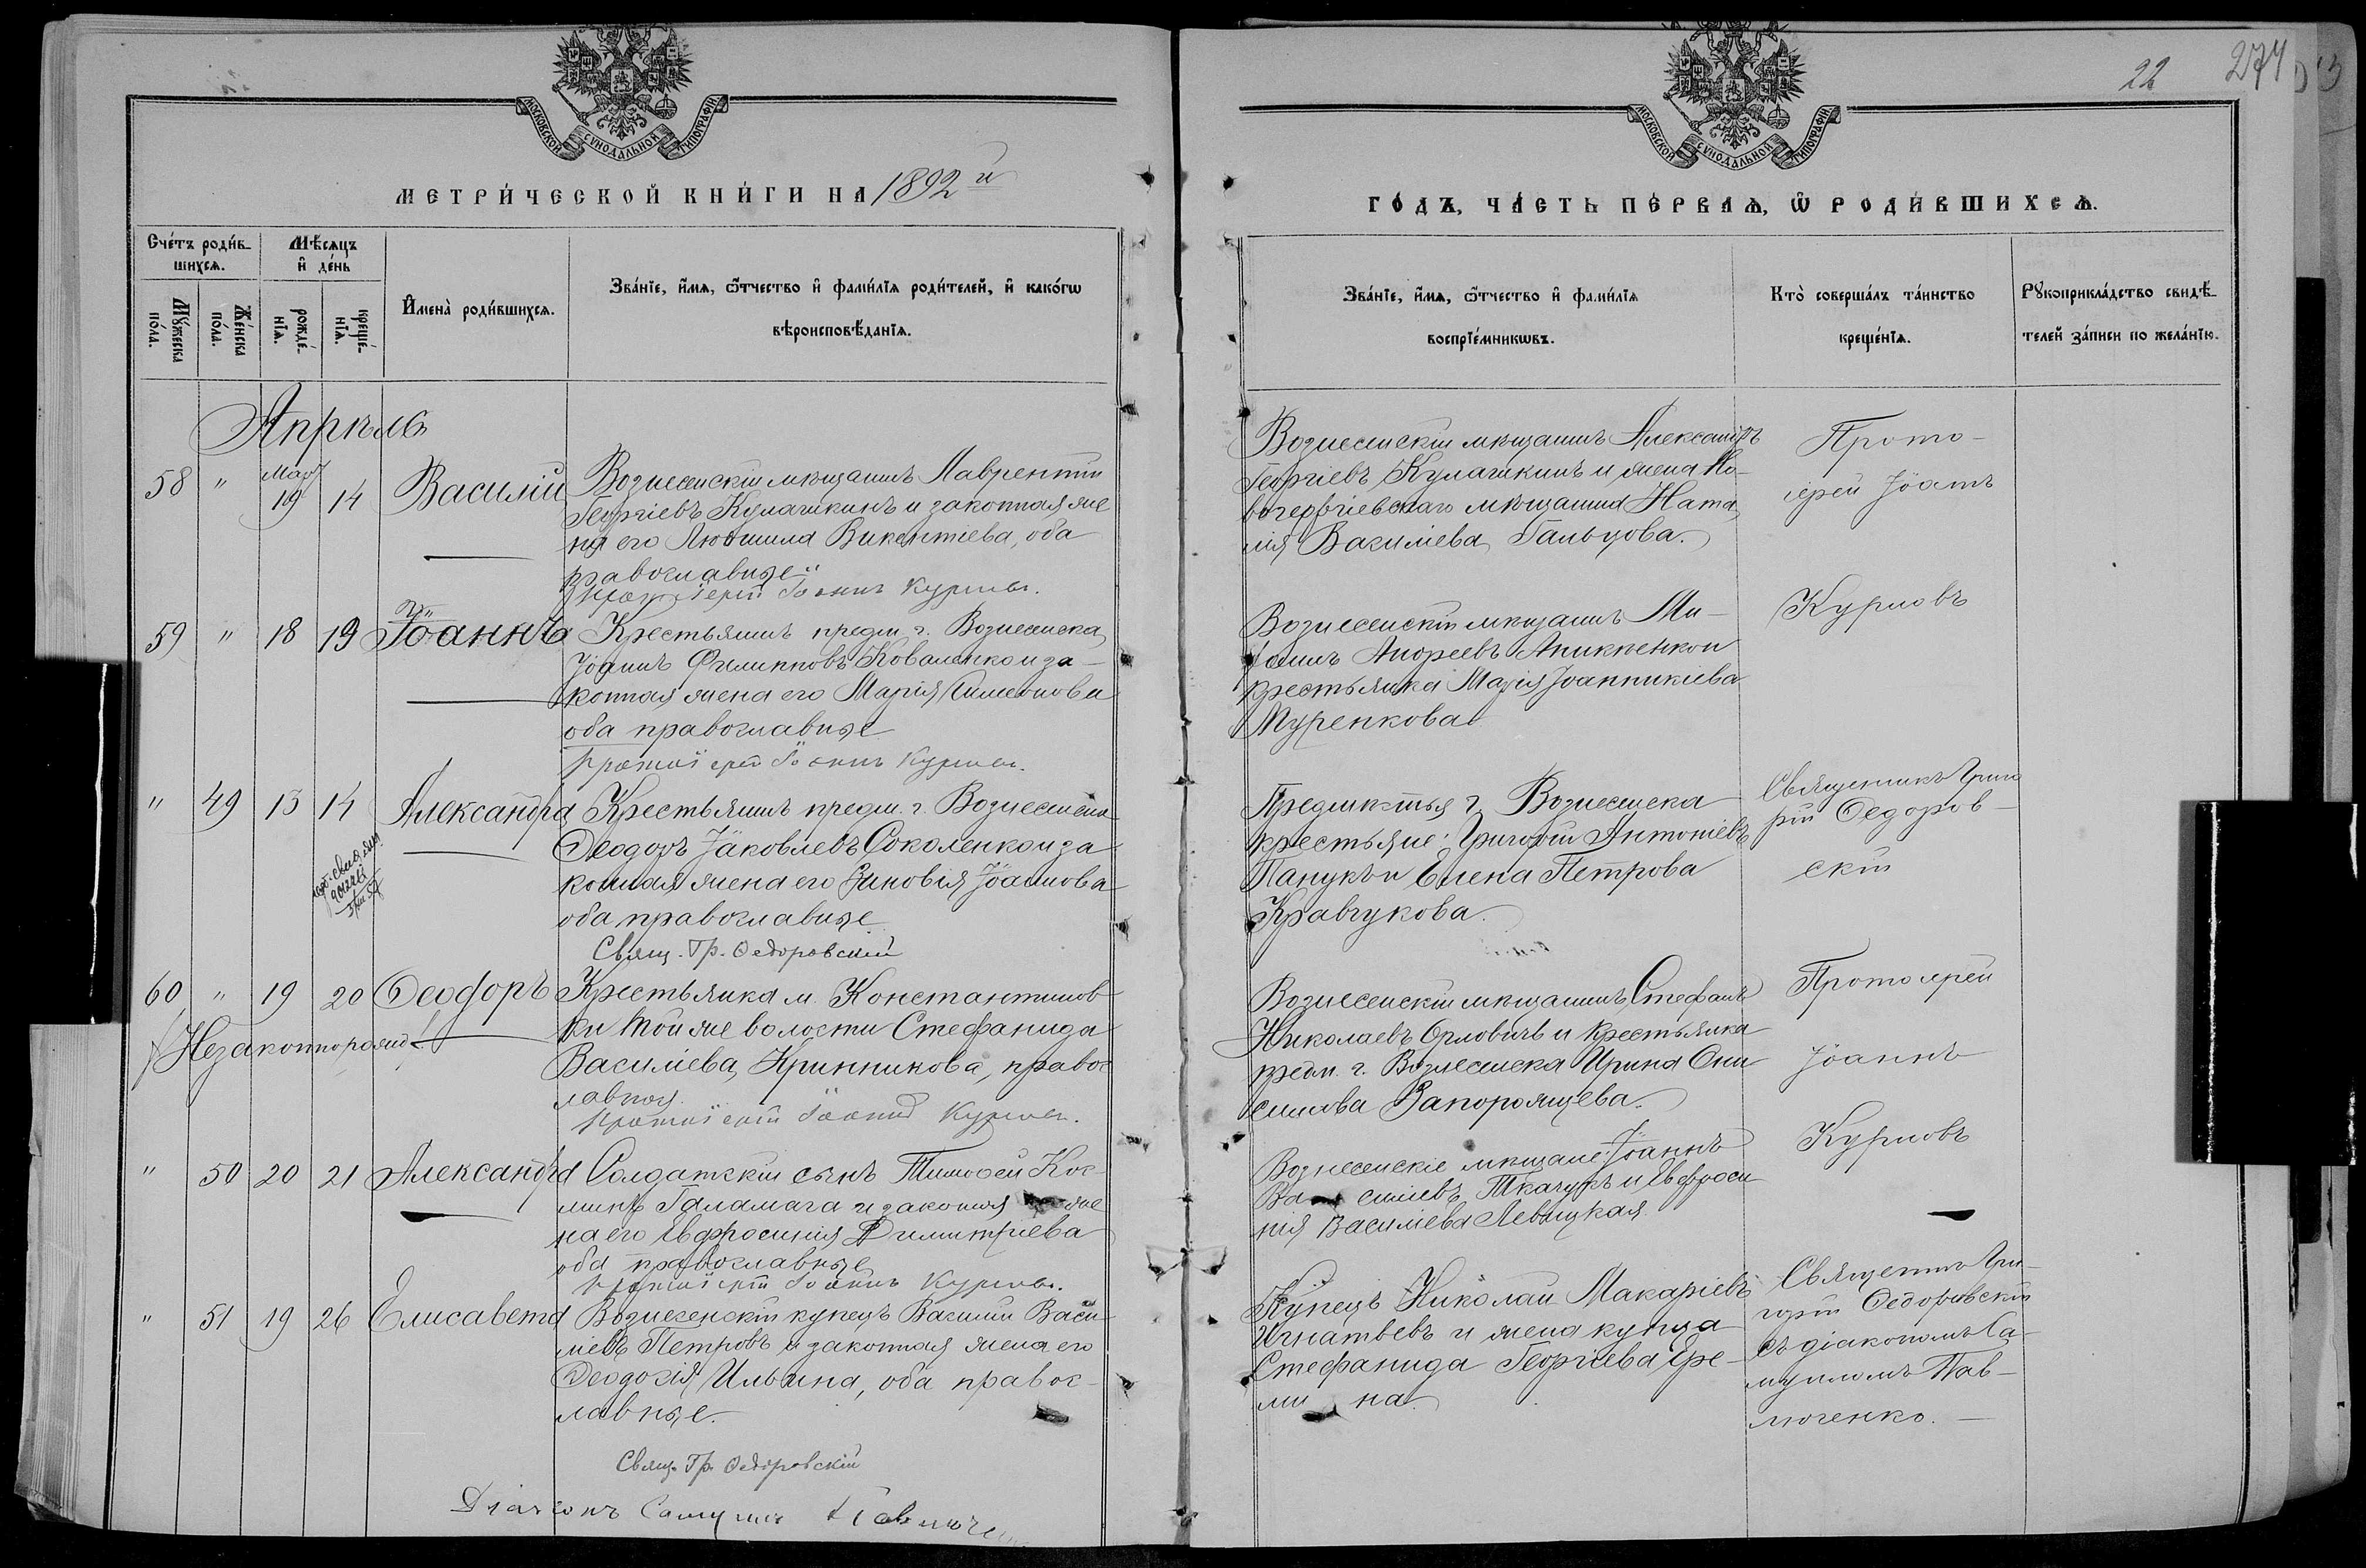 МОСКОВСКОЙ СУНОДАЛЬНОЙ ТИПОГРАФІИ
МЕТРИ́ЧЕСКОЙ КНИ́ГИ НА 1892й
Сче́тъ роди́в-
шихсѧ.
Мѣ́сѧцъ
и҆ де́нь
Мꙋ́жеска
по́ла.
Же́нска
по́ла.
рожде́-
нїѧ.
креще́-
нїѧ.
И҆мена̀ роди́вшихсѧ.
Зва́нїе, и҆́мѧ, ѻ҆́тчество и҆ фами́лїѧ роди́телей, и҆ како́гѡ
вѣроисповѣ́данїѧ.
Апрѣль
58 " Мар. 19 14 Василій
Вознесенскій мѣщанинъ Лаврентій
Георгіевъ Кулашкинъ и законная же
на его Людмила Викентіева, оба
православные
Протоіерей Іоаннъ Курловъ.
59 " 18 19 Іоаннъ
Крестьянинъ предм. г. Вознесенска
Іоаннъ Филипповъ Коваленко и за-
конная жена его Марія Симеонова
оба православные
Протоіерей Іоаннъ Курловъ.
" 49 13 14 Александра
Крестьянинъ предм. г. Вознесенска
Ѳеодоръ Іаковлевъ Соколенко и за
конная жена его Зиновія Іоаннова
оба православные
Свящ. Гр. Ѳедоровскій
60 " 19 20 Ѳеодоръ
/Незаконнорожд./
Крестьянка м. Константинов
ки той же волости Стефанида
Василіева Кринникова, правос
лавная.
Протоіерей Іоаннъ Курловъ.
" 50 20 21 Александра
Солдатскій сынъ Тимоѳей Кос
минъ Галамага и законная же
на его Евфросинія Димитріева
оба православные
Протоіерей Іоаннъ Курловъ.
" 51 19 26 Елисавета
Вознесенскій купецъ Василій Васи
ліевъ Петровъ и законная жена его
Ѳеодосія Ильина, оба правос-
лавные.
Свящ. Гр. Ѳедоровскій
Діаконъ Самуилъ Павлючен
22
274
МОСКОВСКОЙ СУНОДАЛЬНОЙ ТИПОГРАФІИ
ГО́ДЪ, ЧА́СТЬ ПЕ́РВАѦ, Ѡ҆ РОДИ́ВШИХСѦ.
Зва́нїе, и҆́мѧ, ѻ҆́тчество и҆ фами́лїѧ
воспрїе́мникѡвъ.
Кто̀ соверша́лъ та́инство
креще́нїѧ.
Рꙋкоприкла́дство свидѣ́-
телей за́писи по жела́нїю.
Вознесенскій мѣщанинъ Александръ
Георгіевъ Кулашкинъ и жена Но-
вогеоргіевскаго мѣщанина Ната
лія Василіева Гальцова.
Прото-
іерей Іоаннъ
Курловъ
Вознесенскій мѣщанинъ Ми-
хаилъ Андреевъ Аникіенко и
крестьянка Марія Іоанникіева
Муренкова
Предмѣстья г. Вознесенска
крестьяне: Григорій Антоніевъ
Панукъ и Елена Петрова
Кравчукова.
Священникъ Григо
рій Ѳедоров-
скій
Вознесенскій мѣщанинъ Стефанъ
Николаевъ Орловичъ и крестьянка
предм. г. Вознесенска Ирина Они
симова Запорожцева.
Протоіерей
Іоаннъ
Курловъ
Вознесенскіе мѣщане: Іоаннъ
Ва силіевъ Ткачукъ и Евфроси
нія Василіева Левицкая
Купецъ Николай Макаріевъ
Игнатьевъ и жена купца
Стефанида Георгіева Ере-
ми на
Священникъ Гри-
горій Ѳедоровскій
съ діакономъ Са-
муиломъ Пав-
люченко.